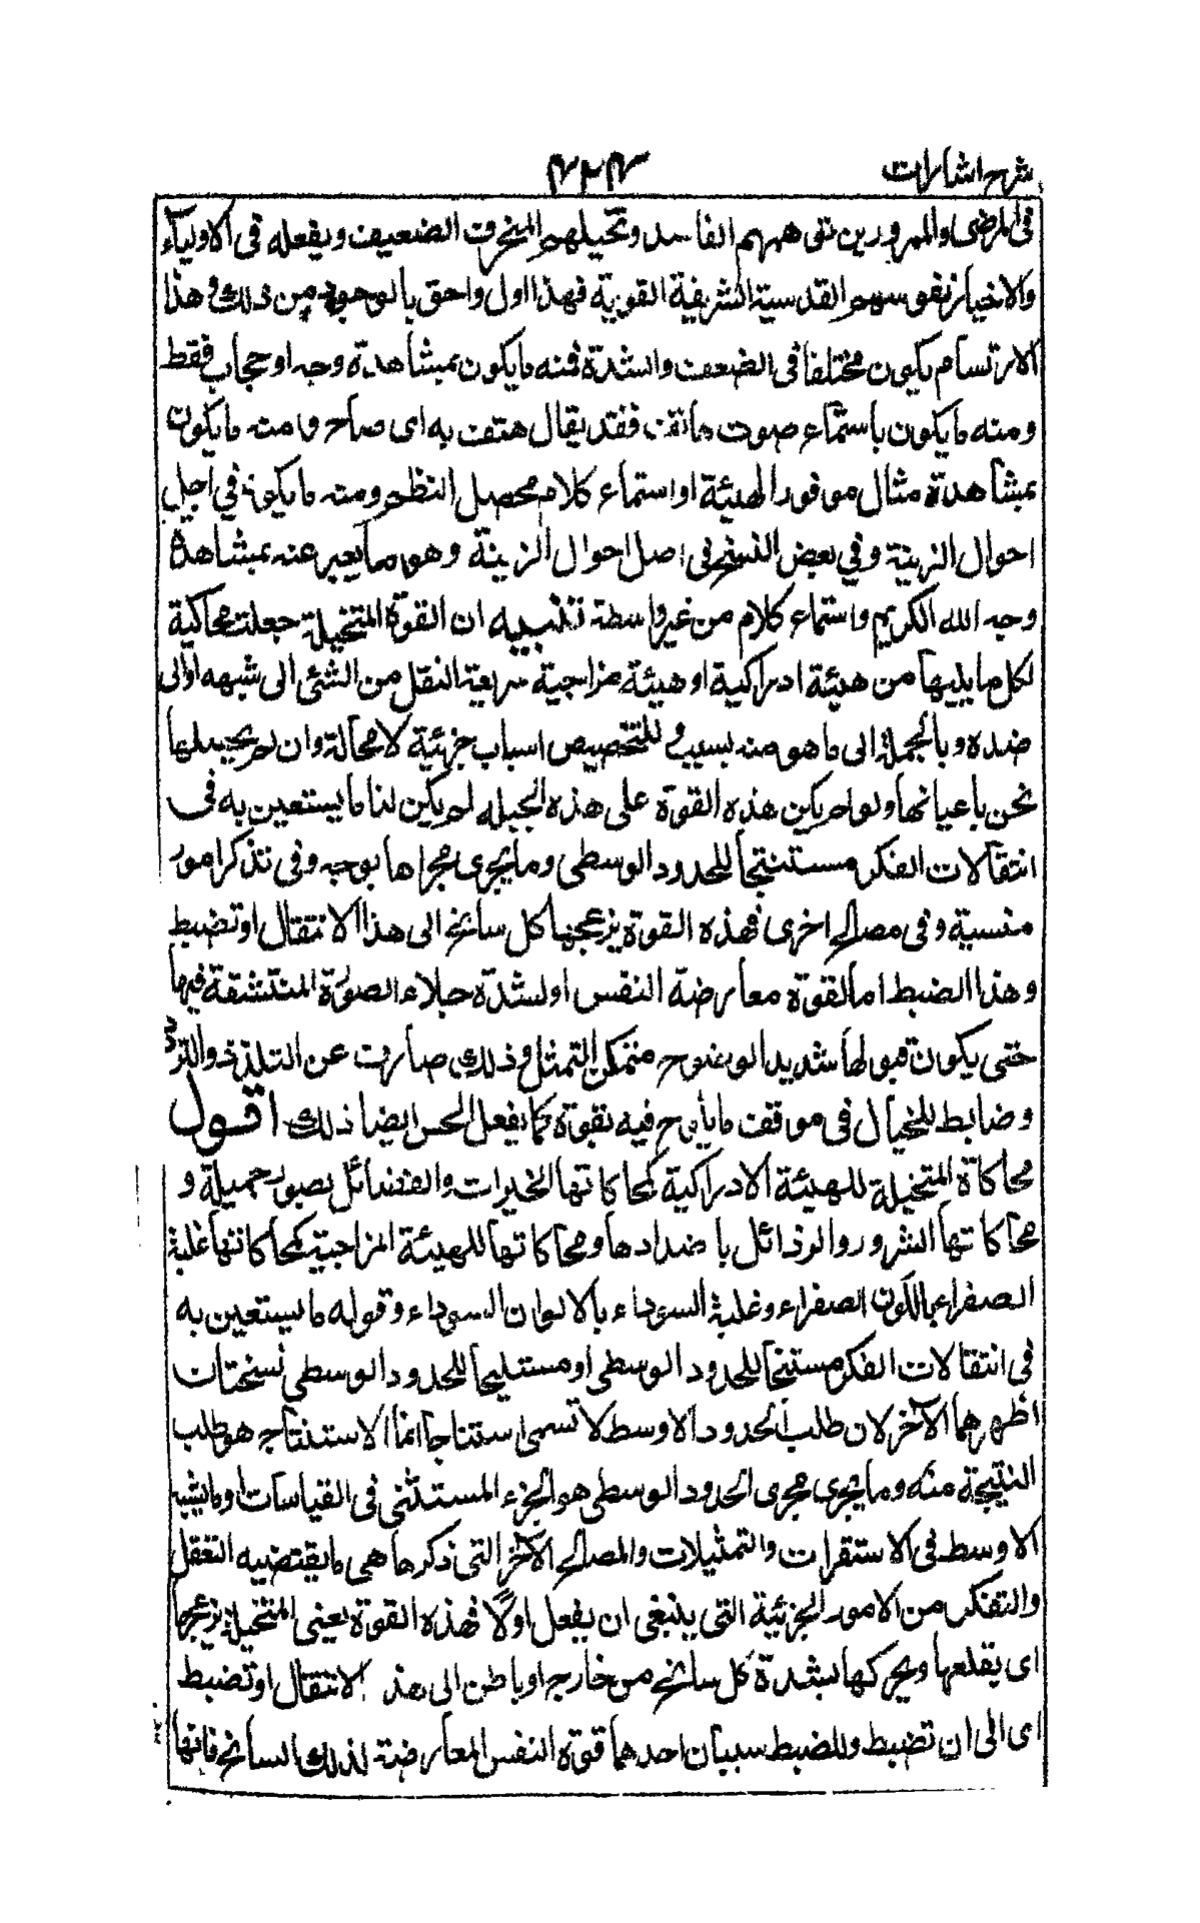 شرح اشارات ۴۲۴
فى المرضى والممرورين توهمهم الفاسد وتخيلهم المنحرف الضعيف ويفعله فى الاولياء
والاخيار نفوسهم القدسية الشريفة القوية فهذا اولى واحق بالوجود من ذلك وهذا
الارتسام يكون مختلفا فى الضعف والشدة فمنه ما يكون بمشاهدة وجه او حجاب فقط
ومنه ما يكون باستماع صوت هاتف فقد يقال هتف به اى صاح ومنه ما يكون
بمشاهدة مثال موفور الهيئة او استماع كلام محصل النظم ومنه ما يكون فى اجل
احوال الزينة وفي بعض النسخ فى اصل احوال الزينة وهو ما يعبر عنه بمشاهدة
وجه الله الكريم واستماع كلام من غير واسطة تنبيه ان القوة المتخيلة جعلت محاكية
لكل ما يليها من هيئة ادراكية او هيئة مزاجية سريعة النقل من الشئ الى شبهه او الى
ضده وبالجملة الى ما هو منه بسبب وللتخصيص اسباب جزئية لا محالة وان لم يحصلها
نحن باعيانها ولو لم يكن هذه القوة على هذه الجبله لم يكن لنا ما يستعين به فى
انتقالات الفكر مستنتجا للحدود الوسطى وما يجرى مجراها بوجه وفى تذكر امور
منسية وفى مصالح اخرى فهذه القوة يزعجها كل سانح الى هذا الانتقال او تضبط
وهذا الضبط اما لقوة معارضة النفس او لشدة جلاء الصورة المنتقشة فيها
حتى يكون قبولها شديد الوضوح متمكن التمثل وذلك صارف عن التلذذ والتردد
وضابط للخيال فى موقف ما يلوح فيه بقوة كما يفعل الحس ايضا ذلك اقول
محاكاة المتخيلة للهيئة الادراكية كمحاكاتها الخيرات والفضائل بصور جميلة و
محاكاتها الشرور والرذائل باضدادها ومحاكاتها للهيئة المزاجية كمحاكاتها غلبة
الصفراء بالالوان الصفراء وغلبة السوداء بالالوان السوداء وقوله ما يستعين به
فى انتقالات الفكر مستنتجا للحدود الوسطى او مستليحا للحدود الوسطى نسختان
اظهرهما الآخر لان طلب الحدود الاوسط لا تسمى استنتاجا انما الاستنتاج هو طلب
النتيجة منه وما يجرى مجرى الحدود الوسطى هو الجزء المستثنى فى القياسات او ما يشبه
الاوسط فى الاستقرات والتمثيلات والمصالح الآخر التى ذكرها هى ما يقتضيه التعقل
والتفكر من الامور الجزئية التى ينبغى ان يفعل اولا فهذه القوة يعنى المتخيلة يزعجها
اى يقلعها ويحركها بشدة كل سانح من خارج او باطن الى هذا الانتقال او تضبط
اى الى ان تضبط وللضبط سببان احدهما قوة النفس المعارضة لذلك السانح فانها